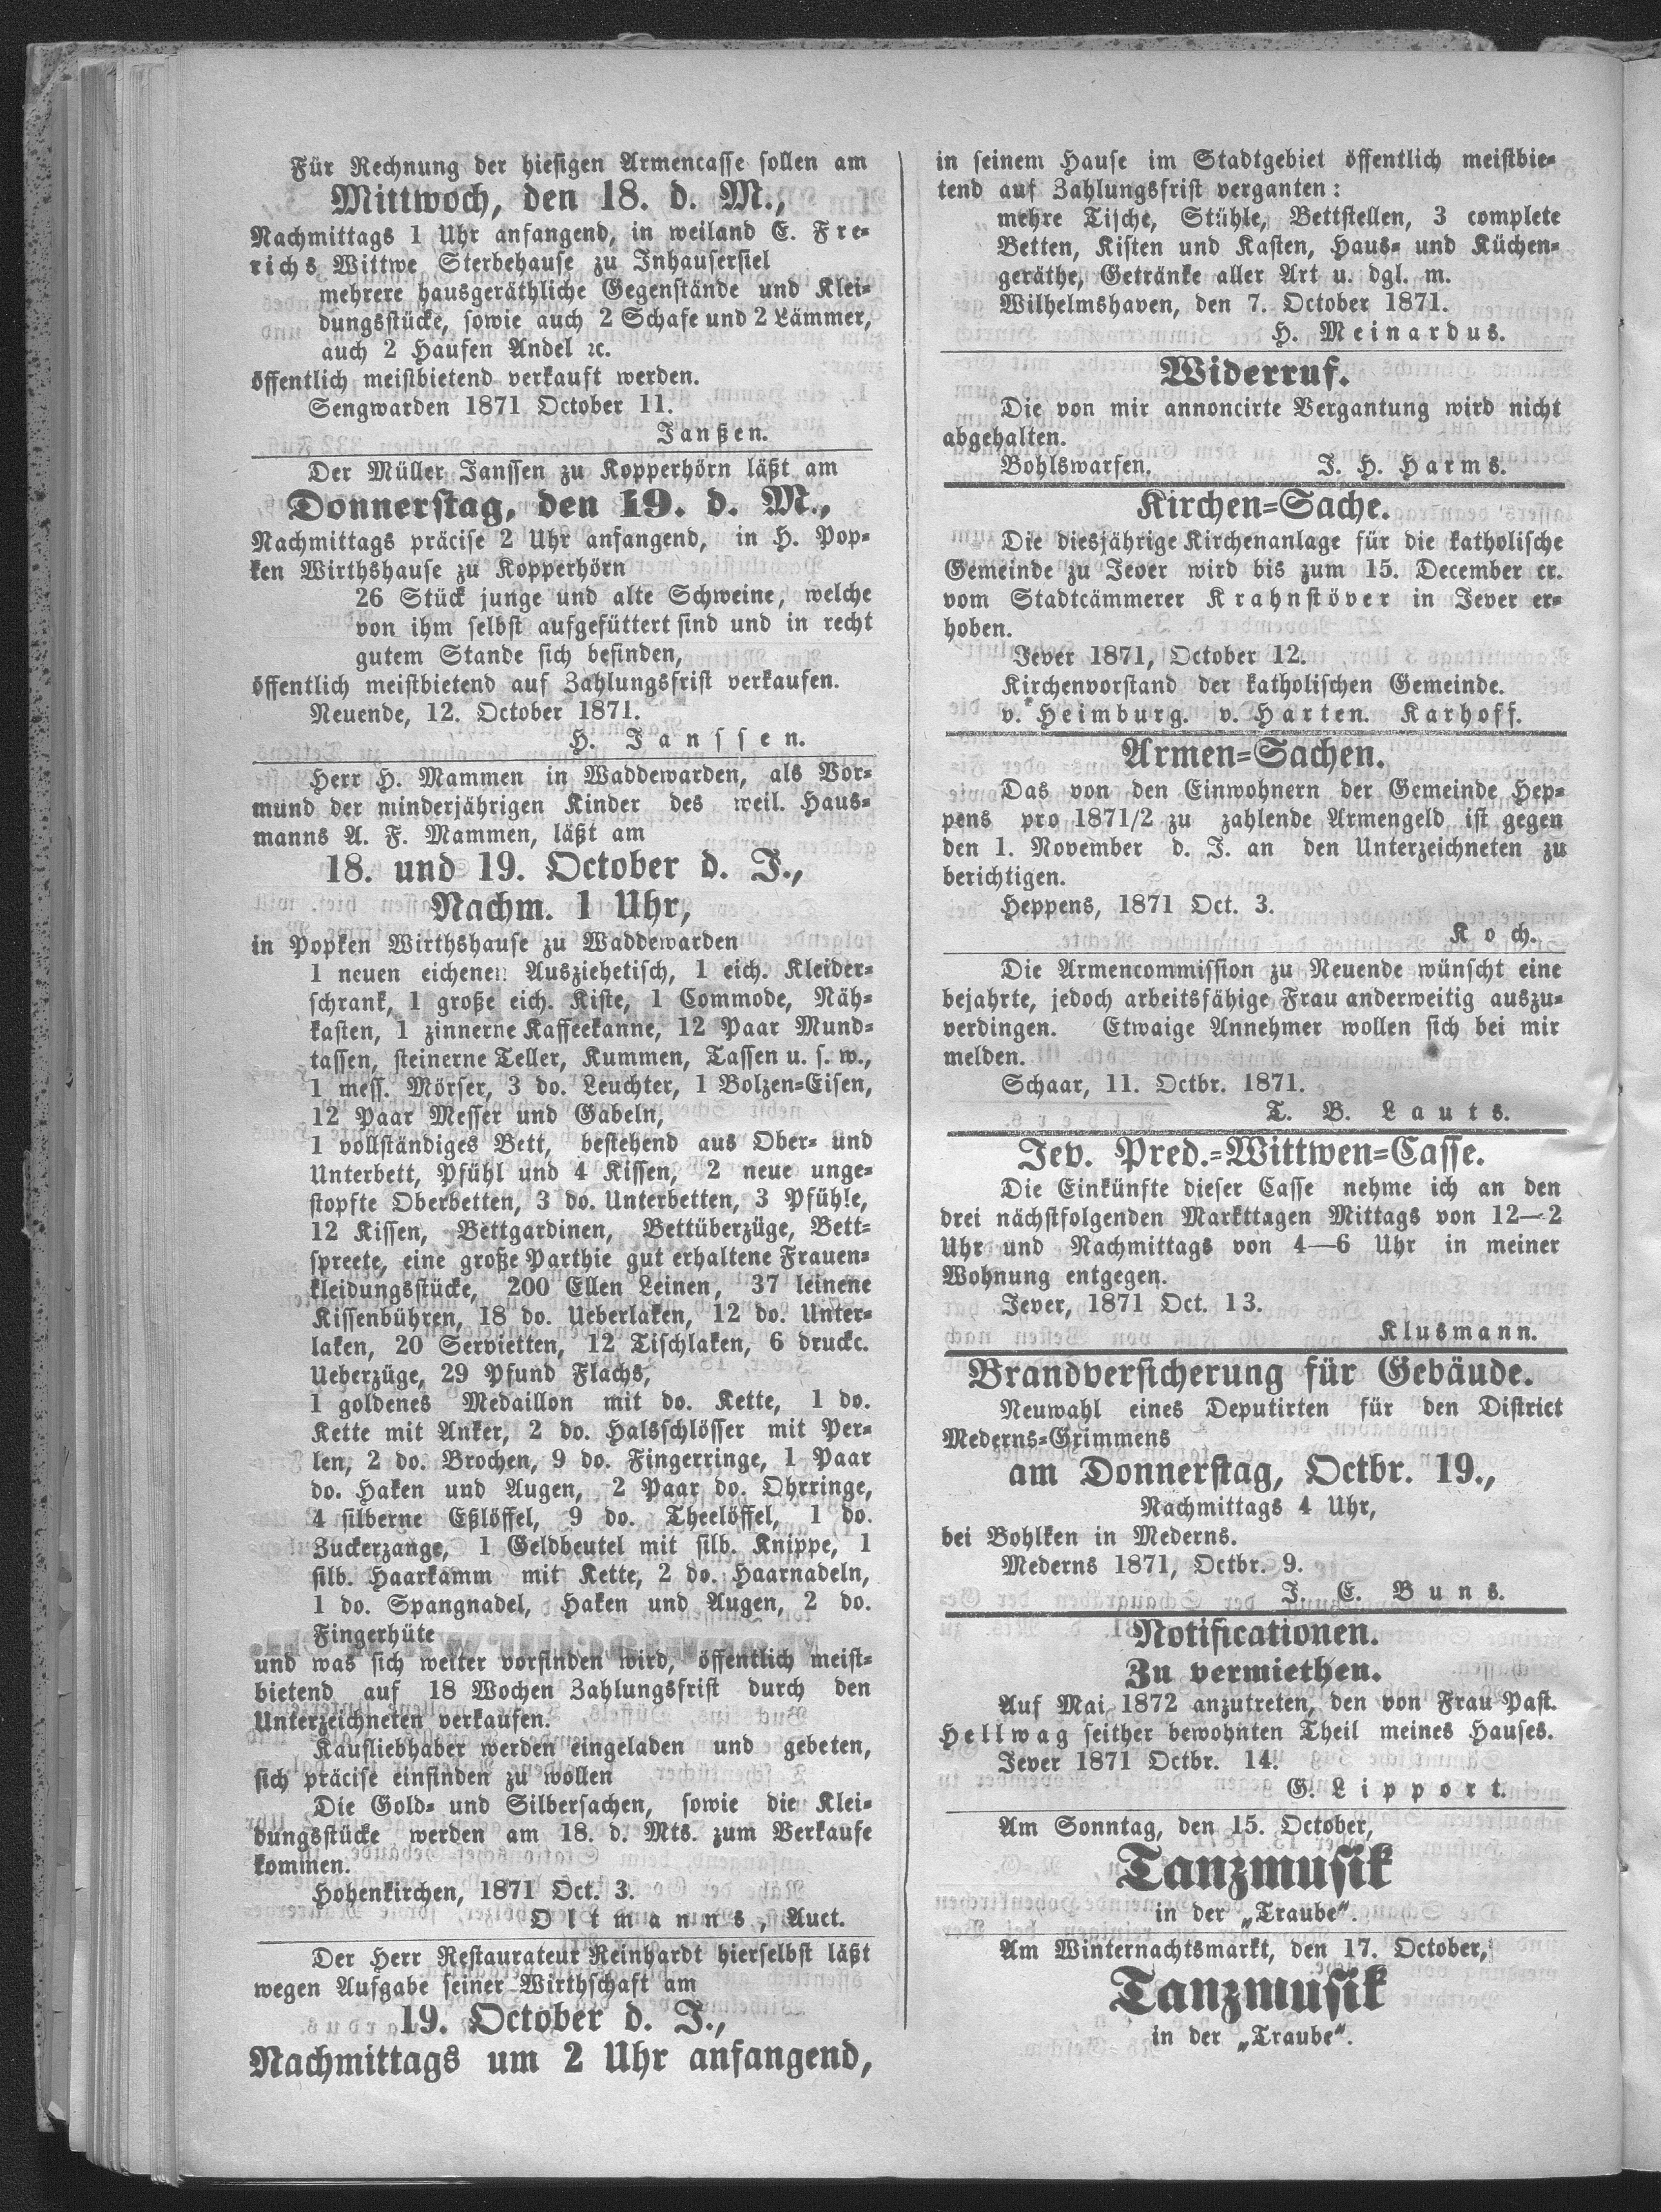 Für Rechnung der hiesigen Armencasse sollen am
Mittwoch, den 18. d. M.,
Nachmittags 1 Uhr anfangend, in weiland E. Fre-
richs Wittwe Sterbehause zu Inhausersiel
mehrere hausgeräthliche Gegenstände und Klei-
dungsstücke, sowie auch 2 Schafe und 2 Lämmer,
auch 2 Haufen Andel ꝛc.
öffentlich meistbietend verkauft werden.
Sengwarden 1871 October 11.
Janßen.
Der Müller Janssen zu Kopperhörn läßt am
Donnerstag, den 19. d. M.,
Nachmittags präcise 2 Uhr anfangend, in H. Pop-
ken Wirthshause zu Kopperhörn
26 Stück junge und alte Schweine, welche
von ihm selbst aufgefüttert sind und in recht
gutem Stande sich befinden,
öffentlich meistbietend auf Zahlungsfrist verkaufen.
Neuende, 12. October 1871.
H. Janssen.
Herr H. Mammen in Waddewarden, als Vor-
mund der minderjährigen Kinder des weil. Haus-
manns A. F. Mammen, läßt am
18. und 19. October d. J.,
Nachm. 1 Uhr,
in Popken Wirthshause zu Waddewarden
1 neuen eichenen Ausziehetisch, 1 eich. Kleider-
schrank, 1 große eich. Kiste, 1 Commode, Näh-
kasten, 1 zinnerne Kaffeekanne, 12 Paar Mund-
tassen, steinerne Teller, Kummen, Tassen u. s. w.,
1 mess. Mörser, 3 do. Leuchter, 1 Bolzen-Eisen,
12 Paar Messer und Gabeln,
1 vollständiges Bett, bestehend aus Ober- und
Unterbett, Pfühl und 4 Kissen, 2 neue unge-
stopfte Oberbetten, 3 do. Unterbetten, 3 Pfühle,
12 Kissen, Bettgardinen, Bettüberzüge, Bett-
spreete, eine große Parthie gut erhaltene Frauen-
kleidungsstücke, 200 Ellen Leinen, 37 leinene
Kissenbühren, 18 do. Ueberlaken, 12 do. Unter-
laken, 20 Servietten, 12 Tischlaken, 6 druckt.
Ueberzüge, 29 Pfund Flachs,
1 goldenes Medaillon mit do. Kette, 1 do.
Kette mit Anker, 2 do. Halsschlösser mit Per-
len, 2 do. Brochen, 9 do. Fingerringe, 1 Paar
do. Haken und Augen, 2 Paar do. Ohrringe,
4 silberne Eßlöffel, 9 do. Theelöffel, 1 do.
Zuckerzange, 1 Geldbeutel mit silb. Knippe, 1
silb. Haarkamm mit Kette, 2 do. Haarnadeln,
1 do. Spangnadel, Haken und Augen, 2 do.
Fingerhüte
und was sich weiter vorfinden wird, öffentlich meist-
bietend auf 18 Wochen Zahlungsfrist durch den
Unterzeichneten verkaufen.
Kaufliebhaber werden eingeladen und gebeten,
sich präcise einfinden zu wollen
Die Gold- und Silbersachen, sowie die Klei-
dungsstücke werden am 18. d. Mts. zum Verkaufe
kommen.
Hohenkirchen, 1871 Oct. 3.
Oltmanns, Auct.
Der Herr Restaurateur Reinhardt hierselbst läßt
wegen Aufgabe seiner Wirthschaft am
19. October d. J.,
Nachmittags um 2 Uhr anfangend,
in seinem Hause im Stadtgebiet öffentlich meistbie-
tend auf Zahlungsfrist verganten:
mehre Tische, Stühle, Bettstellen, 3 complete
Betten, Kisten und Kasten, Haus- und Küchen-
geräthe, Getränke aller Art u. dgl. m.
Wilhelmshaven, den 7. October 1871.
H. Meinardus.
Widerruf.
Die von mir annoncirte Vergantung wird nicht
abgehalten.
Bohlswarfen. J. H. Harms.
Kirchen-Sache.
Die diesjährige Kirchenanlage für die katholische
Gemeinde zu Jever wird bis zum 15. December cr.
vom Stadtcämmerer Krahnstöver in Jever er-
hoben.
Jever 1871, October 12.
Kirchenvorstand der katholischen Gemeinde.
v. Heimburg. v. Harten. Karhoff.
Armen-Sachen.
Das von den Einwohnern der Gemeinde Hep-
pens pro 1871/2 zu zahlende Armengeld ist gegen
den 1. November d. J. an den Unterzeichneten zu
berichtigen.
Heppens, 1871 Oct. 3.
Koch.
Die Armencommission zu Neuende wünscht eine
bejahrte, jedoch arbeitsfähige Frau anderweitig auszu-
verdingen. Etwaige Annehmer wollen sich bei mir
melden.
Schaar, 11. Octbr. 1871.
T. B. Lauts.
Jev. Pred.-Wittwen-Casse.
Die Einkünfte dieser Casse nehme ich an den
drei nächstfolgenden Markttagen Mittags von 12—2
Uhr und Nachmittags von 4—6 Uhr in meiner
Wohnung entgegen.
Jever, 1871 Oct. 13.
Klusmann.
Brandversicherung für Gebäude.
Neuwahl eines Deputirten für den District
Mederns-Grimmens
am Donnerstag, Octbr. 19.,
Nachmittags 4 Uhr,
bei Bohlken in Mederns.
Mederns 1871, Octbr. 9.
J. E. Buns.
Notificationen.
Zu vermiethen.
Auf Mai 1872 anzutreten, den von Frau Past.
Hellwag seither bewohnten Theil meines Hauses.
Jever 1871 Octbr. 14.
G. Lipport.
Am Sonntag, den 15. October,
Tanzmusik
in der „Traube“.
Am Winternachtsmarkt, den 17. October,
Tanzmusik
in der „Traube“.